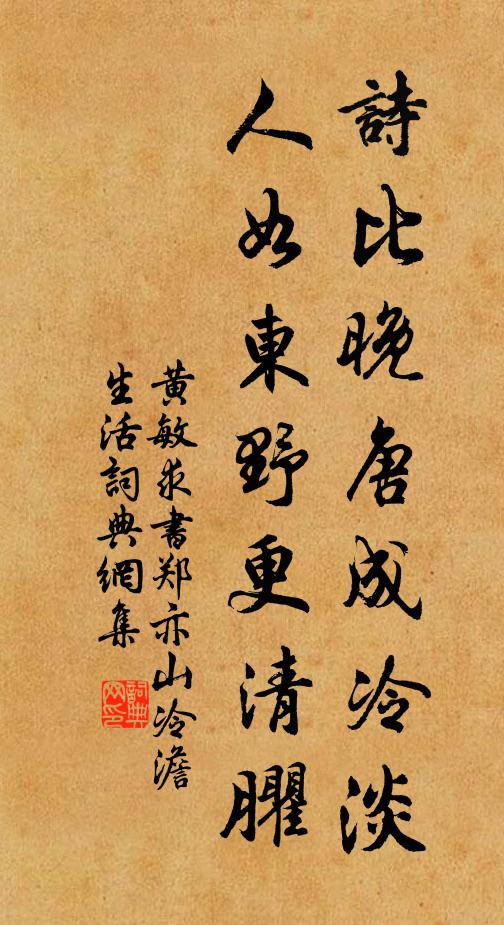 詩比晚唐成冷淡
人如東野更清臞
黄敏求書郑亦山冷澹
生活詞典網集
詞典網印